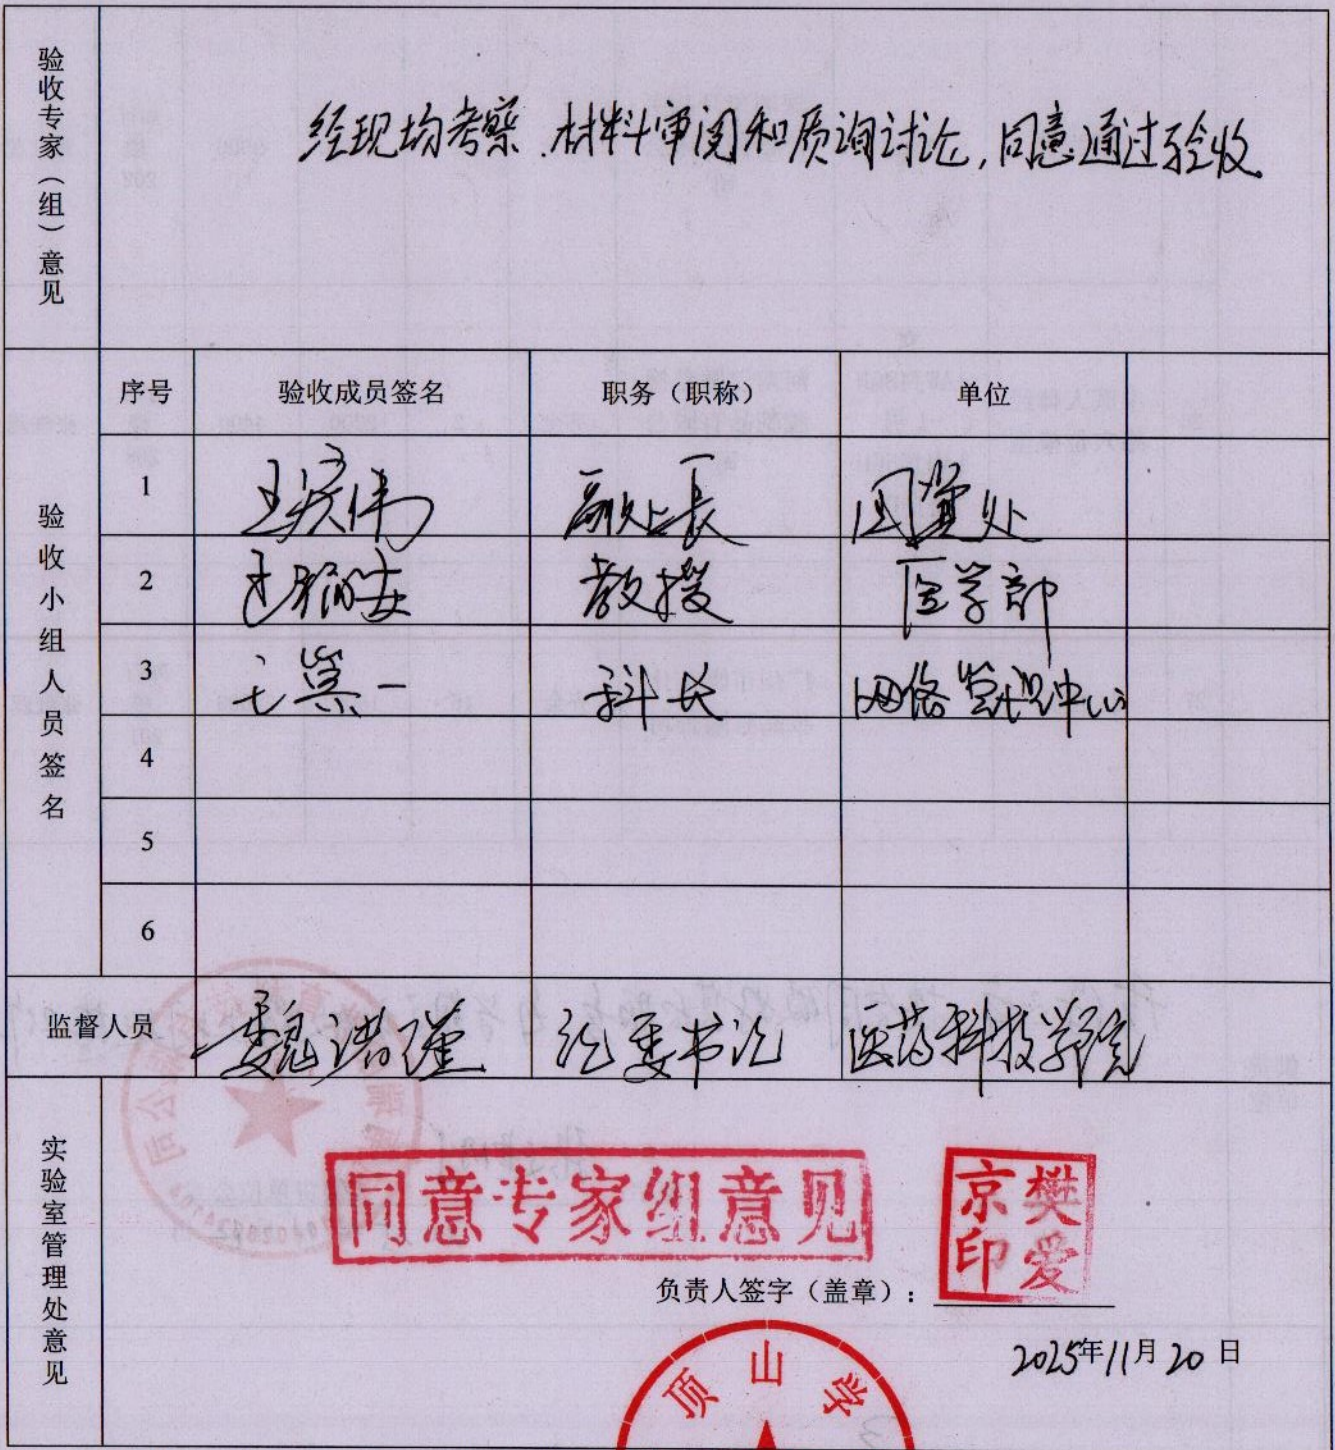 验收专家（组）意见
经现场考察、材料审阅和质询讨论，同意通过验收。
验收小组人员签名
序号 验收成员签名 职务（职称） 单位
1 副处长 国资处
2 教授 医学部
3 科长 网络管理中心
4
5
6
监督人员 魏浩瑾 纪委书记 医药科技学院
实验室管理处意见
同意专家组意见
樊爱京印
负责人签字（盖章）：
2025年11月20日
顶山学